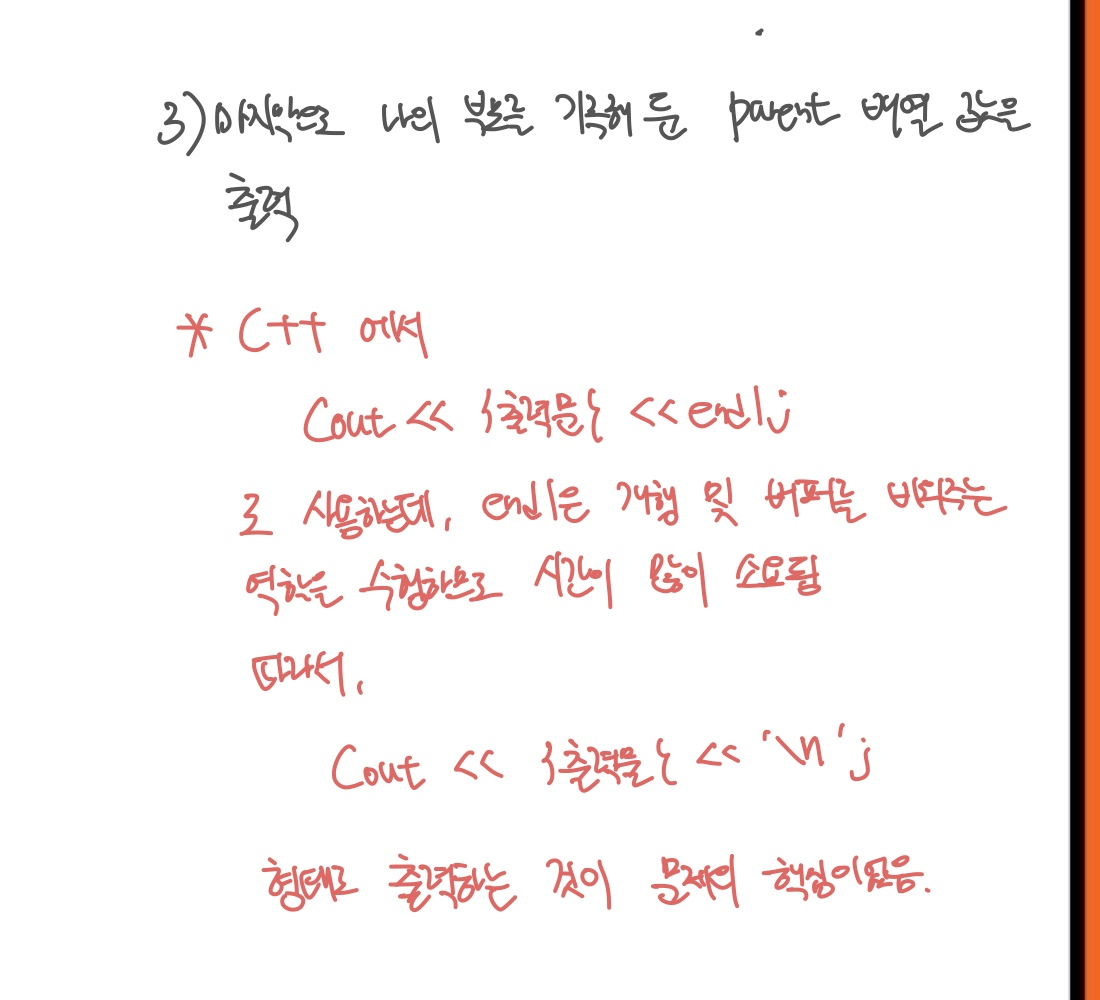 3) 마지막으로 나의 부모를 기록해 둔 parent 배열 값을
출력
* C++ 에서
Cout << {출력문} << endl;
로 사용하는데, endl은 개행 및 버퍼를 비워주는
역할을 수행하므로 시간이 많이 소요됨
따라서,
Cout << {출력물} << '\n';
형태로 출력하는 것이 문제의 핵심이었음.